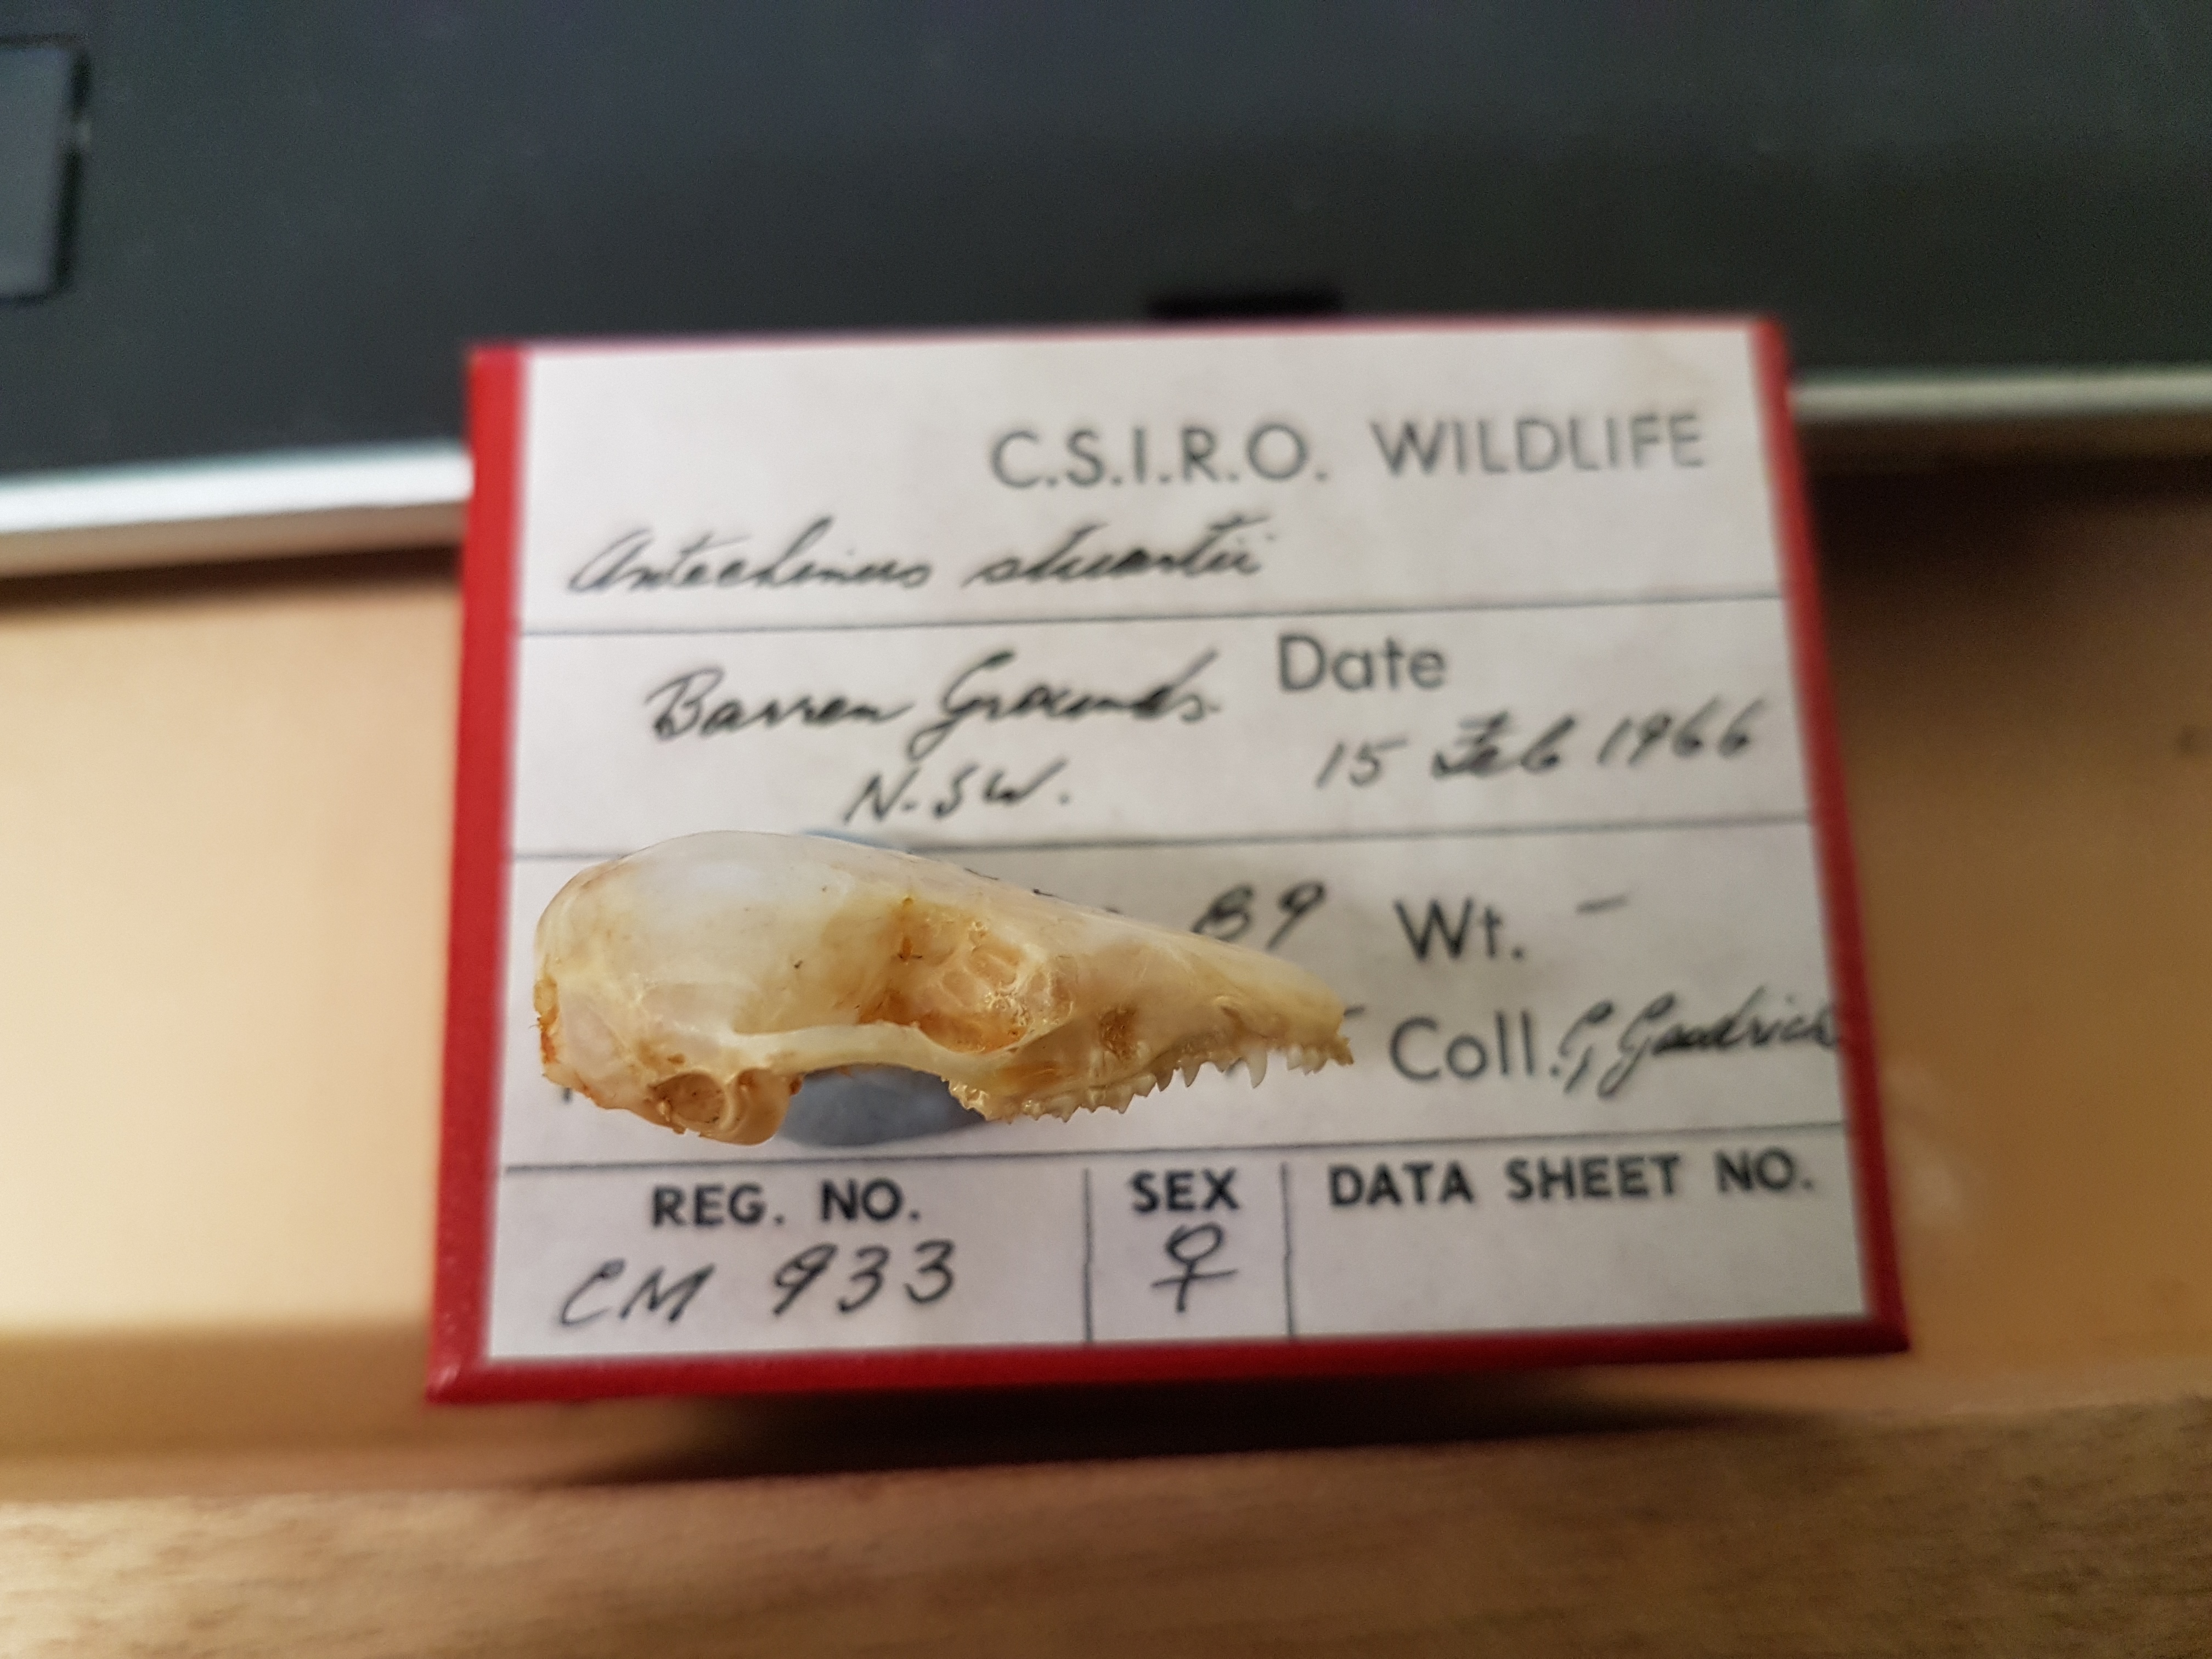 C.S.I.R.O. WILDLIFE
Antechinus stuartii
Barren Grounds. Date
N.S.W. 15 Feb 1966
89 Wt. –
Coll. G Goodrich
REG. NO. SEX DATA SHEET NO.
CM 933 ♀